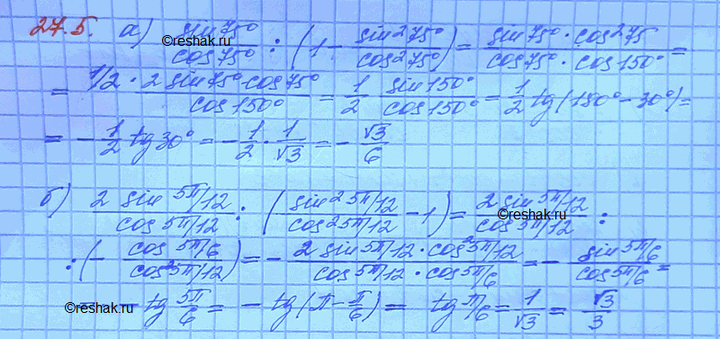 27.5. а) sin 75° / cos 75° : (1 − sin²75° / cos²75°) = sin 75° · cos²75 / cos 75° · cos 150° =
= 1/2 · 2 sin 75° · cos 75° / cos 150° = 1/2 sin 150° / cos 150° = 1/2 tg(180° − 30°) =
= − 1/2 tg 30° = − 1/2 · 1/√3 = − √3/6
б) 2 sin 5π/12 / cos 5π/12 : (sin² 5π/12 / cos² 5π/12 − 1) = 2 sin 5π/12 / cos 5π/12 :
: (− cos 5π/6 / cos² 5π/12) = − 2 sin 5π/12 · cos² 5π/12 / cos 5π/12 · cos 5π/6 = − sin 5π/6 / cos 5π/6 =
= − tg 5π/6 = − tg(π − π/6) = tg π/6 = 1/√3 = √3/3
©reshak.ru
©reshak.ru
©reshak.ru